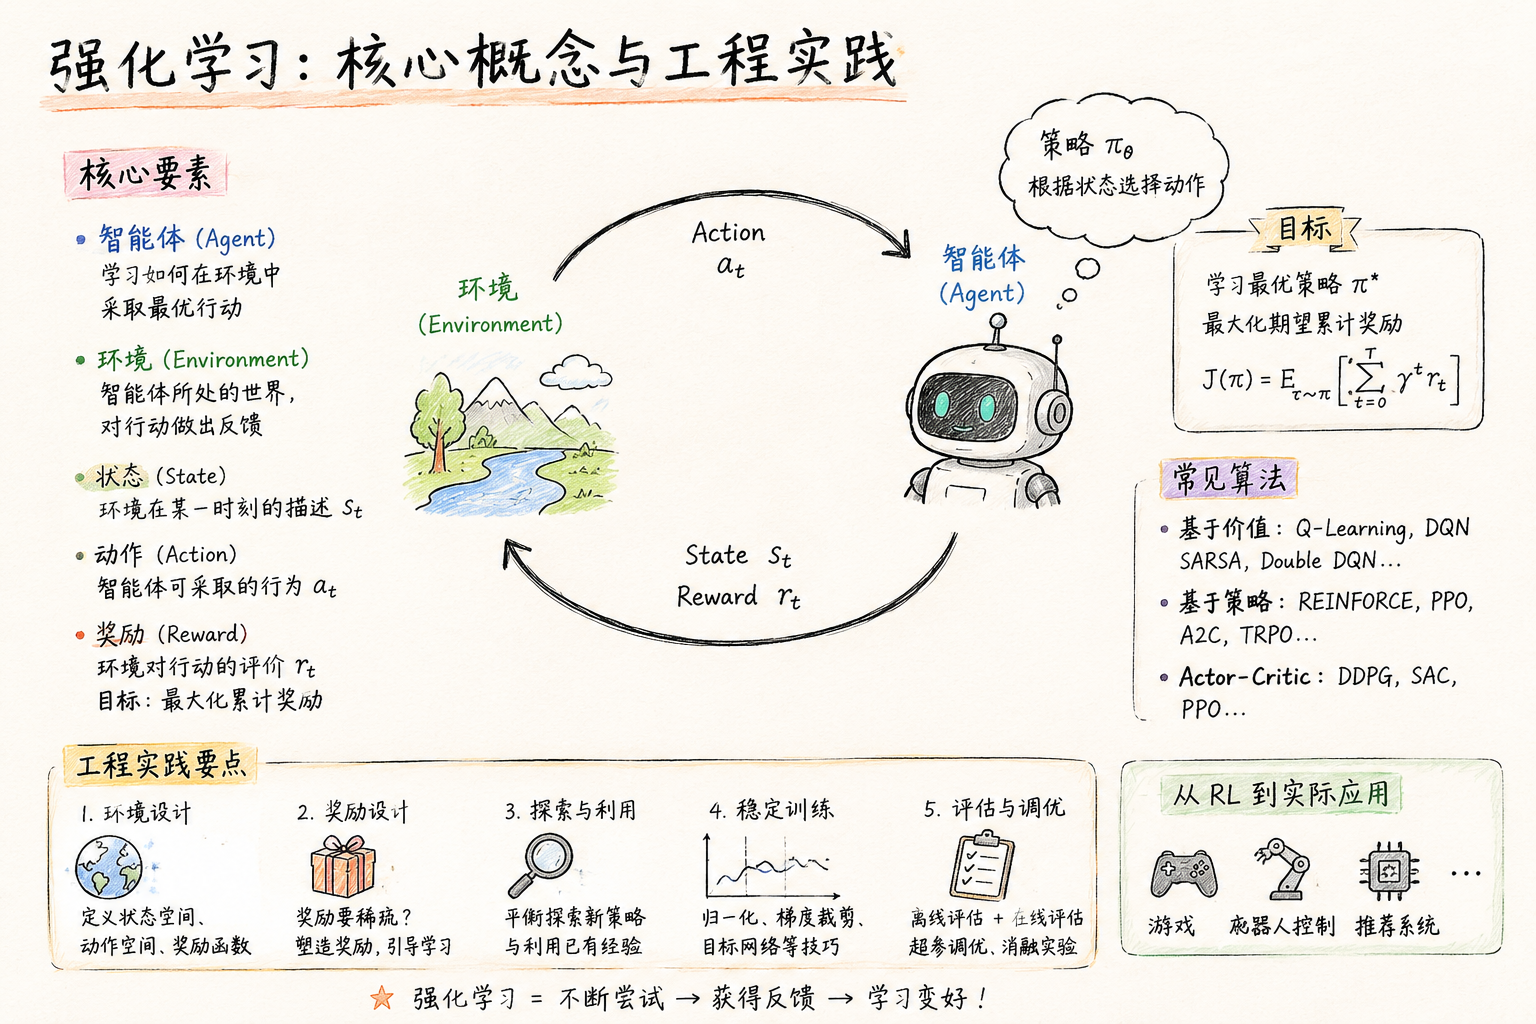 强化学习：核心概念与工程实践
核心要素
• 智能体 (Agent)
学习如何在环境中
采取最优行动
• 环境 (Environment)
智能体所处的世界，
对行动做出反馈
• 状态 (State)
环境在某一时刻的描述 st
• 动作 (Action)
智能体可采取的行为 at
• 奖励 (Reward)
环境对行动的评价 rt
目标：最大化累计奖励
环境
(Environment)
Action
at
State st
Reward rt
智能体
(Agent)
策略 πθ
根据状态选择动作
目标
学习最优策略 π*
最大化期望累计奖励
J(π) = Eτ~π [∑t=0T γt rt]
常见算法
• 基于价值：Q-Learning, DQN
SARSA, Double DQN...
• 基于策略：REINFORCE, PPO,
A2C, TRPO...
• Actor-Critic：DDPG, SAC,
PPO...
工程实践要点
1. 环境设计
定义状态空间、
动作空间、奖励函数
2. 奖励设计
奖励要稀疏？
塑造奖励，引导学习
3. 探索与利用
平衡探索新策略
与利用已有经验
4. 稳定训练
归一化、梯度裁剪、
目标网络等技巧
5. 评估与调优
离线评估 + 在线评估
超参调优、消融实验
从 RL 到实际应用
游戏
器人控制
推荐系统
...
强化学习 = 不断尝试 → 获得反馈 → 学习变好！